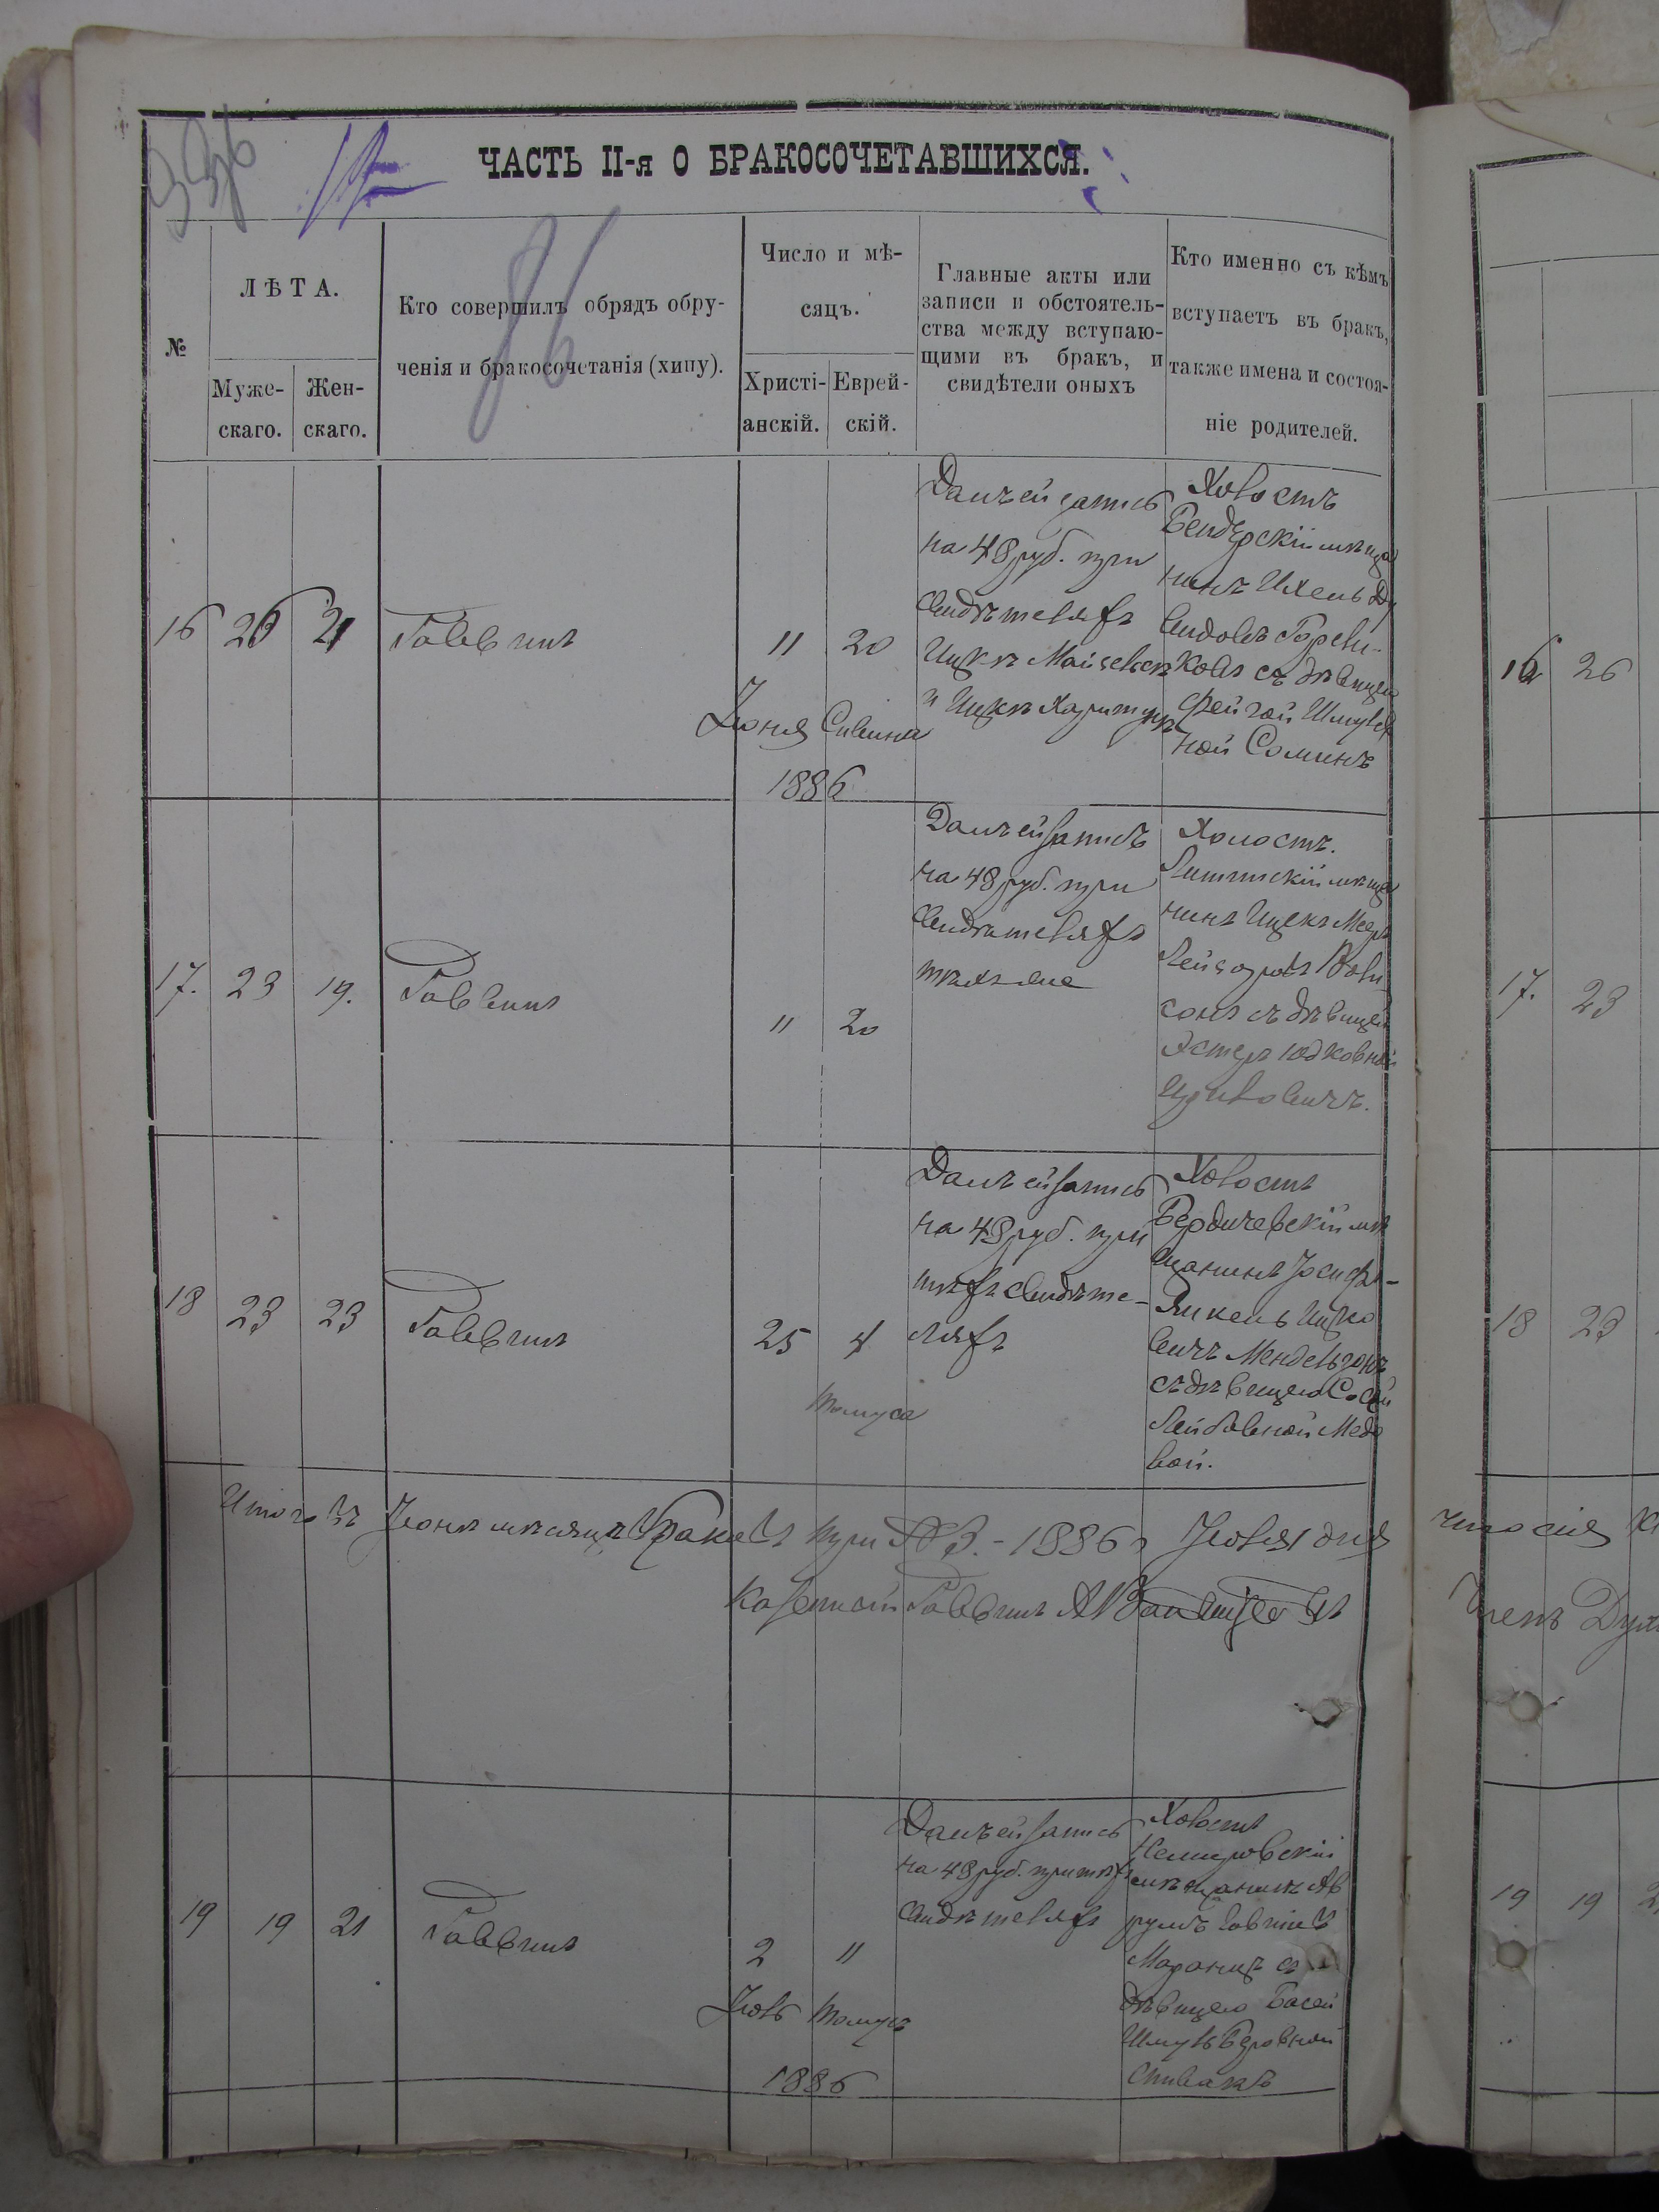 336
ЧАСТЬ II-я О БРАКОСОЧЕТАВШИХСЯ.
№
ЛѢТА.
Муже-
скаго.
Жен-
скаго.
Кто совершилъ обрядъ обру-
ченія и бракосочетанія (хипу).
Число и мѣ-
сяцъ.
Христі-
анскій.
Еврей-
скій.
Главные акты или
записи и обстоятель-
ства между вступаю-
щими въ бракъ, и
свидѣтели оныхъ
Кто именно съ кѣмъ
вступаетъ въ бракъ,
также имена и состоя-
ніе родителей.
16 26 21 Раввинъ
11 20
Іюня Сивина
1886
Далъ ей запись
на 48 руб. при
свидѣтеляхъ
Ицкѣ
и Ицкѣ
Холостъ
Бендерскій мѣща
нинъ Ихель Ду
видовъ
ковъ съ дѣвицею
Фейгой Шмулев
ной Соминъ
17. 23 19. Раввинъ
11 20
Далъ ей запись
на 48 руб. при
свидѣтеляхъ
тѣхъ же
Холостъ.
мѣща
нинъ Ицекъ Меер
Лейзоровъ Воли
сонъ съ дѣвицей
Эстеръ Юдковной
18 23 23 Раввинъ
25 4
Томуса
Далъ ей запись
на 48 руб. при
тѣхъ свидѣте-
ляхъ
Холостъ
Бердичевскій мѣ
щанинъ Іосифъ-
Янкель Ицко
вичъ Мендельзонъ
съ дѣвицею Сосей
Лейбовной Медо
вой.
Итого въ Іюнѣ мѣсяцѣ браковъ три № 3. - 1886 г Іюля 1 дня
Казенный Раввинъ
19 19 21 Раввинъ
2 11
Іюль Томусъ
1886
Далъ ей запись
на 48 руб. при тѣхъ
свидѣтеляхъ
Холостъ
Немировскій
мѣщанинъ Ав
румъ
Маранцъ съ
дѣвицею Басей
Шмуль Беровной
Спивакъ
16 26
17. 23
18 23
19 19